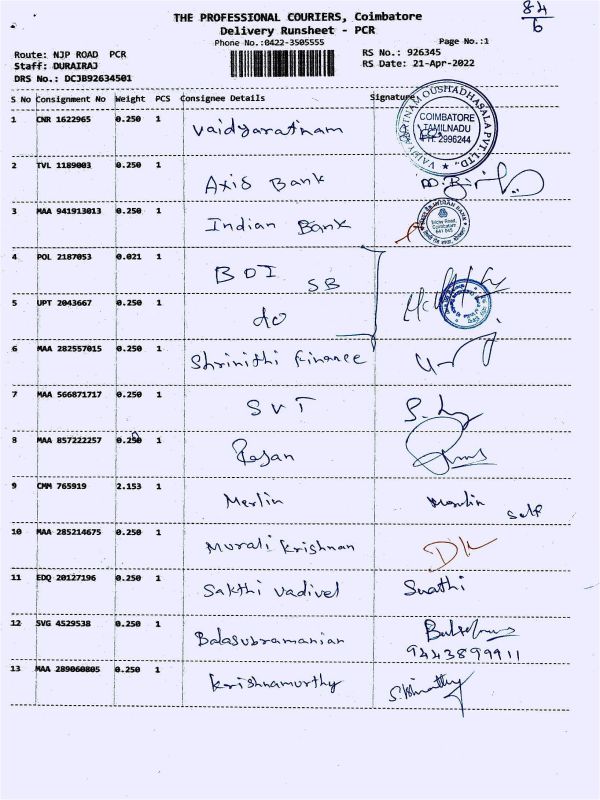 84
6
THE PROFESSIONAL COURIERS, Coimbatore
Delivery Runsheet - PCR
Phone No.:0422-3505555
Page No.:1
Route: NJP ROAD PCR
RS No.: 926345
Staff: DURAIRAJ
RS Date: 21-Apr-2022
DRS No.: DCJB92634501
S No Consignment No Weight PCS Consignee Details Signature
1 CNR 1622965 0.250 1 Vaidyaratnam
VAIDYARATNAM OUSHADHASALA PVT. LTD.
COIMBATORE
TAMILNADU
PH: 2996244
2 TVL 1189003 0.250 1 Axis Bank
3 MAA 941913013 0.250 1 Indian Bank
INDIAN BANK
Trichy Road,
Coimbatore
641 045
4 POL 2187053 0.021 1 BOI SB
5 UPT 2043667 0.250 1 do
6 MAA 282557015 0.250 1 Shrinithi Finance
7 MAA 566871717 0.250 1 SVT
8 MAA 857222257 0.250 1 Rajan
9 CMM 765919 2.153 1 Merlin Merlin self
10 MAA 285214675 0.250 1 Murali Krishnan
11 EDQ 20127196 0.250 1 Sakthi Vadivel Swathi
12 SVG 4529538 0.250 1 Balasubramanian
9443899911
13 MAA 289060805 0.250 1 Krishnamurthy